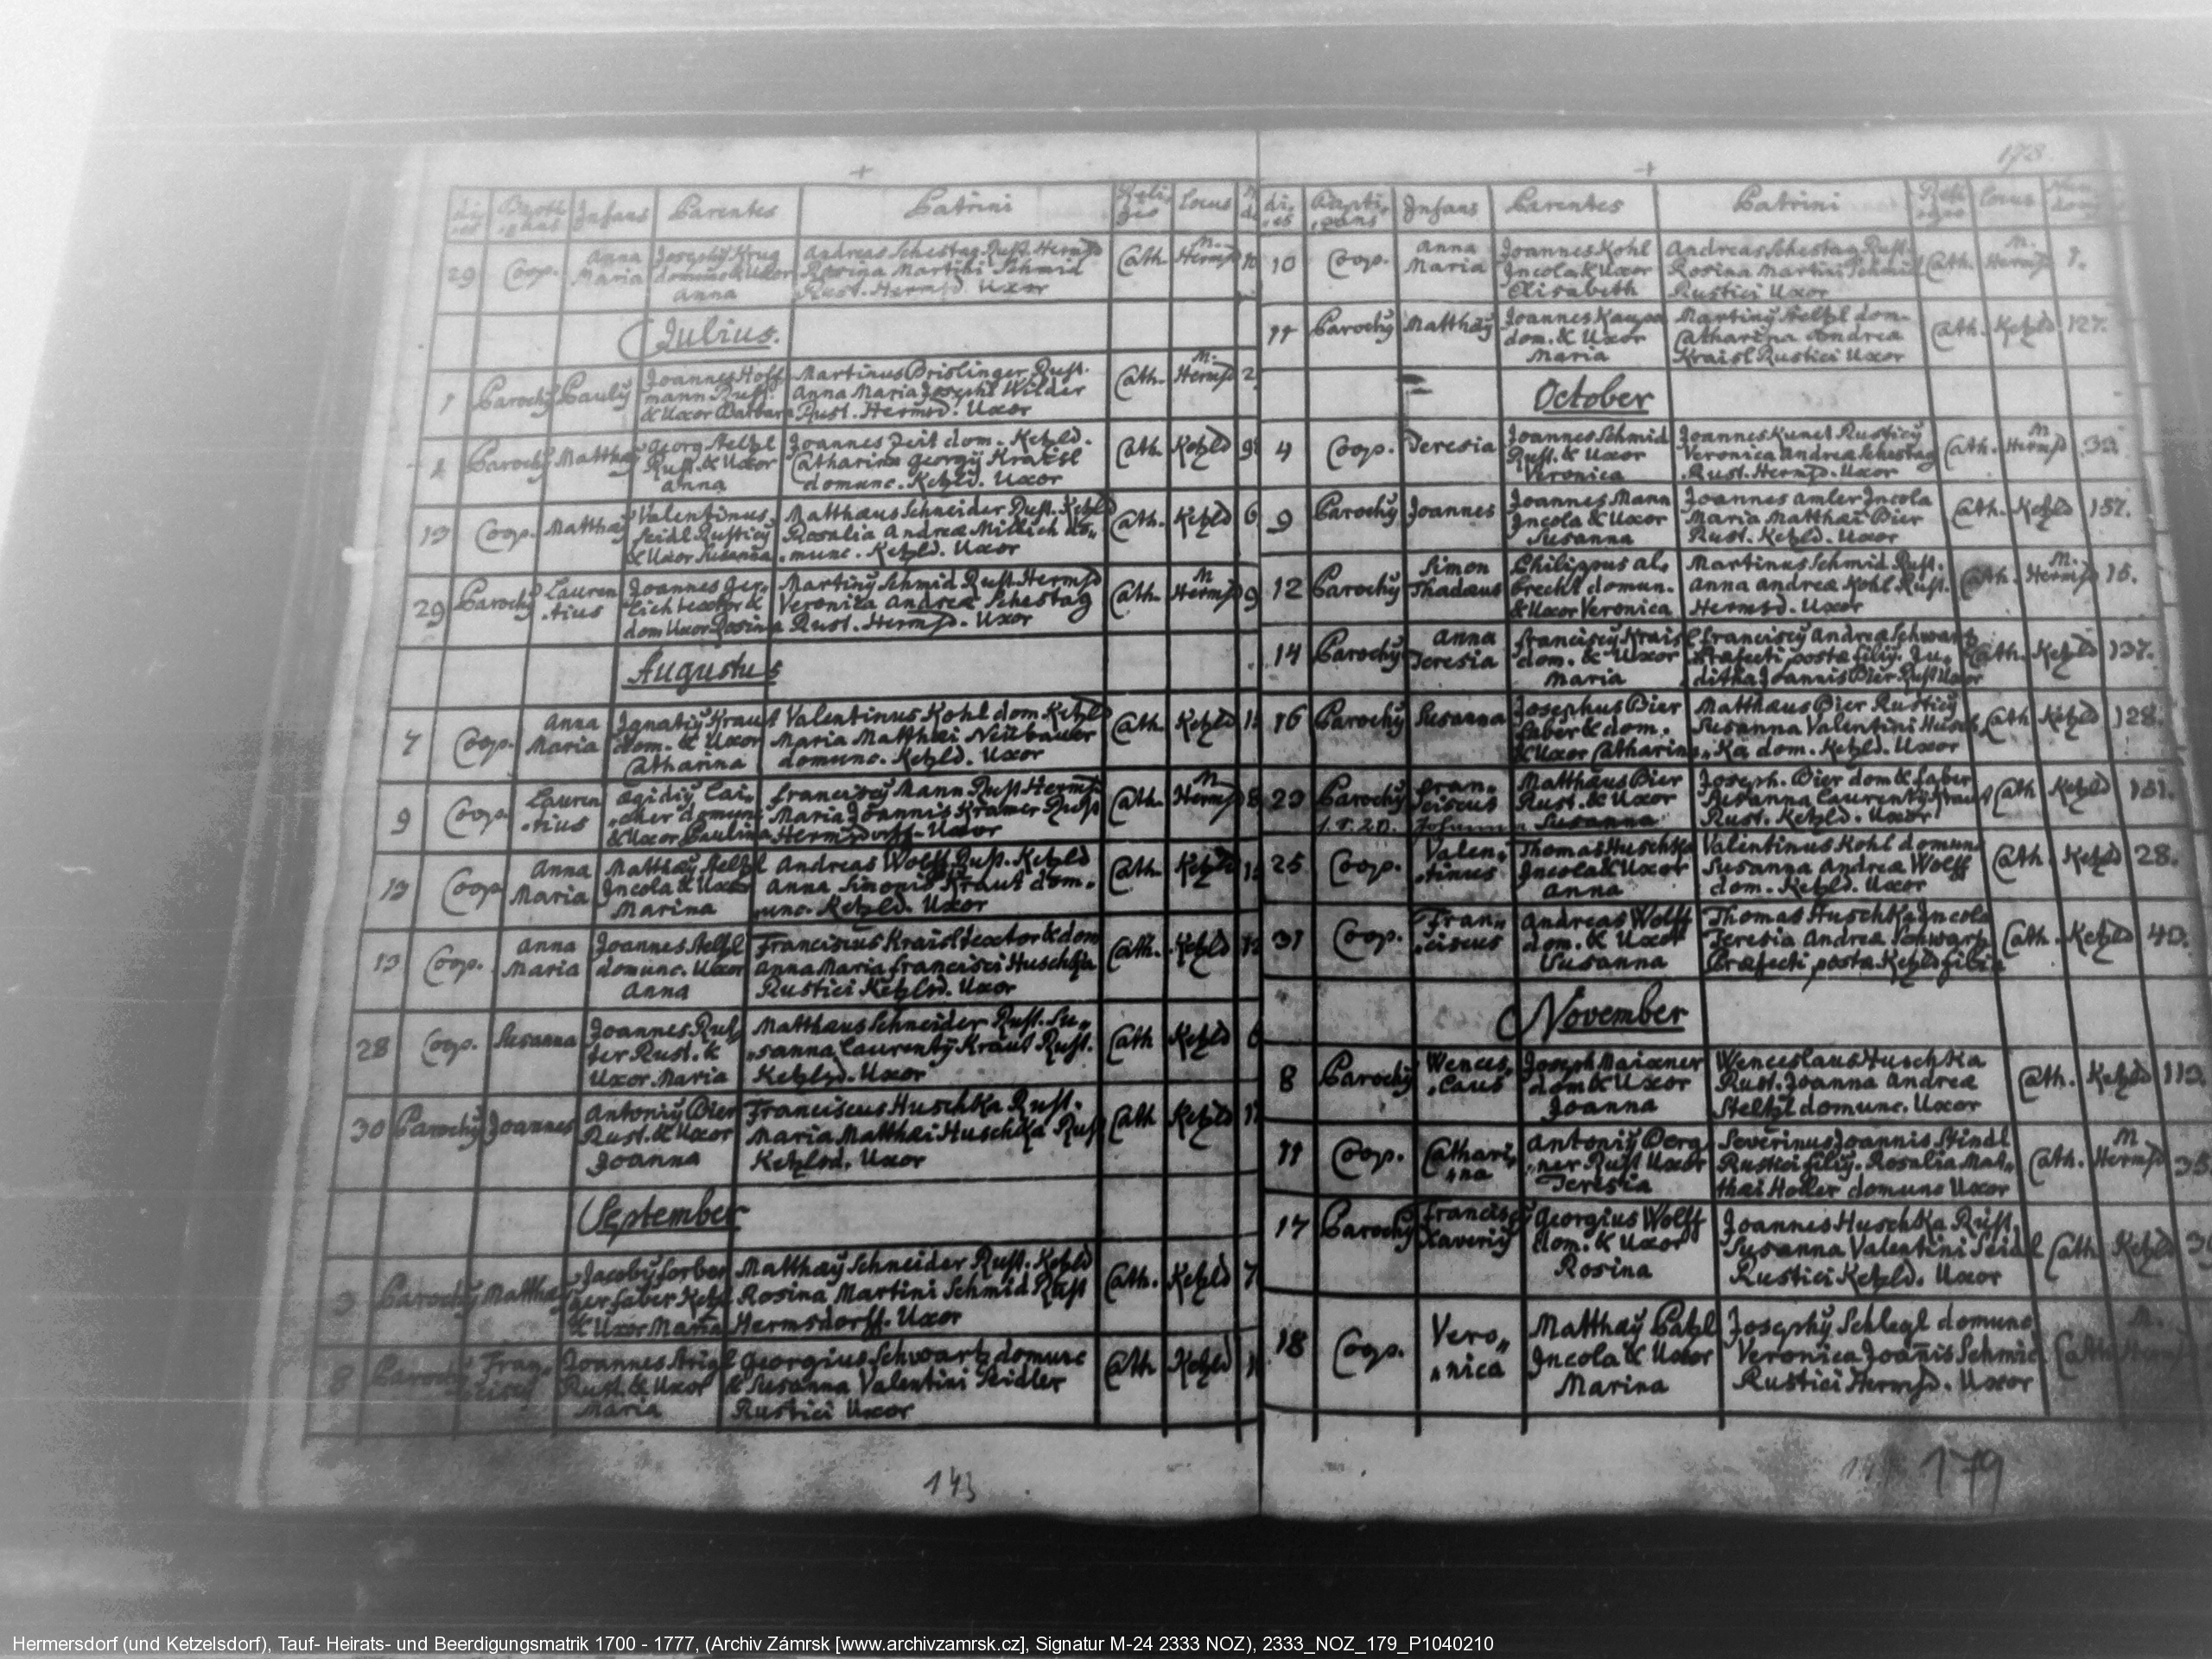 178.
dies Bapti- zans Infans Parentes Patrini Reli- gio Locus
29 Coop. Anna Maria Josephy Krug domunc & Uxor Anna
Andreas Schestag Rust. Hermsd
Rosina Martini Schmid
Rust. Hermsd. Uxor
Cath. M. Hermsd 10
Julius.
1 Parochy Pauly Joannes Hoff-
mann Rust.
& Uxor Barbara
Martinus Brislinger Rust.
Anna Maria Josephi Wilder
Rust. Hermsd. Uxor
Cath. M. Hermsd 2
Parochy Matthæy Georg Steltzl
Rust. & Uxor
Anna
Joannes Zeit dom. Ketzld.
Catharina Georgy Kraisl
domunc. Ketzld. Uxor
Cath. Ketzld 9
13 Coop. Matthæy Valentinus
Seidl Rusticy
& Uxor Susanna
Matthæus Schneider Rust. Ketzld
Rosalia Andreæ Millich do„
munc. Ketzld. Uxor
Cath. Ketzld 6
29 Parochy Lauren
tius Joannes Ger„
lich textor &
dom Uxor Rosina
Martiny Schmid Rust Hermsd
Veronica Andreæ Schestag
Rust. Hermsd. Uxor
Cath. M Hermsd 9
Augustus
7 Coop. Anna
Maria Ignatiy Kraut
dom. & Uxor
Catharina
Valentinus Kohl dom Ketzld
Maria Matthæi Neübauer
domunc. Ketzld. Uxor
Cath. Ketzld 1
9 Coop. Lauren
tius Ægidiy Lai„
cher domunc
& Uxor Paulina
Franciscy Mann Rust Hermsd
Maria Joannis Kramer Rust
Hermsdorff. Uxor
Cath. M Hermsd 8
13 Coop Anna
Maria Matthæy Steltzl
Incola & Uxor
Marina
Andreas Wolff Rust. Ketzld
Anna Simonis Kraut dom„
unc. Ketzld. Uxor
Cath. Ketzld 1
13 Coop. Anna
Maria Joannes Steltzl
domunc. Uxor
Anna
Franciscus Kraisl textor & dom
Anna Maria Francisci Huschka
Rustici Ketzlsd. Uxor
Cath. Ketzld 12
28 Coop. Susanna Joannes Ruß
ler Rust. &
Uxor Maria
Matthæus Schneider Rust. Su„
„sanna Laurenty Kraut Rust.
Ketzlsd. Uxor
Cath Ketzld 6
30 Parochy Joannes Antoniy Bier
Rust. & Uxor
Joanna
Franciscus Huschka Rust.
Maria Matthæi Huschka Rust
Ketzlsd. Uxor
Cath Ketzld 1
September
3 Parochy Matthæy Jacoby Forber
ger faber Ketzl
& Uxor Maria
Matthæy Schneider Rust. Ketzld
Rosina Martini Schmid Rust
Hermsdorff. Uxor
Cath. Ketzld 7
8 Parochy Fran„
ciscy Joannes Strigl
Rust. & Uxor
Maria
Georgius Schwartz domunc
& Susanna Valentini Seidler
Rustici Uxor
Cath Ketzld 1
143
di- es Bapti- zans Infans Parentes Patrini Reli- gio Locus
10 Coop. Anna
Maria Joannes Kohl
Incola & Uxor
Elisabeth
Andreas Schestag Rust.
Rosina Martini Schmid
Rustici Uxor
Cath. M. Hermsd 1.
11 Parochy Matthæy Joannes Kaupa
dom. & Uxor
Maria
Martiny Steltzl dom.
Catharina Andreæ
Kraisl Rustici Uxor
Cath. Ketzld 127.
October
4 Coop. Teresia Joannes Schmid
Rust. & Uxor
Veronica
Joannes Kunert Rusticy
Veronica Andreæ Schestag
Rust. Hermsd. Uxor
Cath. M Hermsd 32.
9 Parochy Joannes Joannes Mann
Incola & Uxor
Susanna
Joannes Amler Incola
Maria Matthæi Bier
Rust. Ketzld. Uxor
Cath. Ketzld 157.
12 Parochy Simon
Thadæus Philippus al„
breckt domun.
& Uxor Veronica
Martinus Schmid Rust.
Anna Andreæ Kohl Rust.
Hermsd. Uxor
Cath. M. Hermsd 15.
14 Parochy Anna
Teresia Franciscy Kraisl
dom. & Uxor
Maria
Franciscy Andreæ Schwartz
Præfecti postæ filiy. Ju„
ditha Joannis Bier Rust Uxor
Cath. Ketzld 137.
16 Parochy Susanna Josephus Bier
faber & dom.
& Uxor Catharina
Matthæus Bier Rusticy
Susanna Valentini Husch
„ka dom. Ketzld. Uxor
Cath Ketzld 128.
23 Parochy Fran„
ciscus Matthæus Bier
Rust. & Uxor
Susanna
Joseph. Bier dom & faber
Susanna Laurenty Kraut
Rust. Ketzld. Uxor
Cath Ketzld 151.
25 Coop. Valen„
tinus Thomas Huschka
Incola & Uxor
Anna
Valentinus Kohl domun
Susanna Andreæ Wolff
dom. Ketzld. Uxor
Cath. Ketzld 28.
31 Coop. Fran„
ciscus Andreas Wolff
dom. & Uxor
Susanna
Thomas Huschka Incola
Teresia Andreæ Schwartz
Præfecti postæ Ketzld filia
Cath. Ketzld 40.
November
8 Parochy Wences„
„laus Joseph Maixner
dom & Uxor
Joanna
Wenceslaus Huschka
Rust. Joanna Andreæ
Steltzl domunc. Uxor
Cath. Ketzld 113.
11 Coop. Cathari„
„na Antoniy Berg
„ner Rust Uxor
Teresia
Severinus Joannis Stindl
Rustici filiy. Rosalia Mat„
thæi Holler domunc Uxor
Cath. M Hermsd 35
17 Parochy Franciscy
Xaveriy Georgius Wolff
dom. & Uxor
Rosina
Joannes Huschka Rust.
Susanna Valentini Seidl
Rustici Ketzld. Uxor
Cath. Ketzld 3
18 Coop. Vero„
„nica Matthæy Patzl
Incola & Uxor
Marina
Josephy Schlegl domunc
Veronica Joannis Schmid
Rustici Hermsd. Uxor
Cath M. Hermsd
179
Hermersdorf (und Ketzelsdorf), Tauf- Heirats- und Beerdigungsmatrik 1700 - 1777, (Archiv Zámrsk [www.archivzamrsk.cz], Signatur M-24 2333 NOZ), 2333_NOZ_179_P1040210